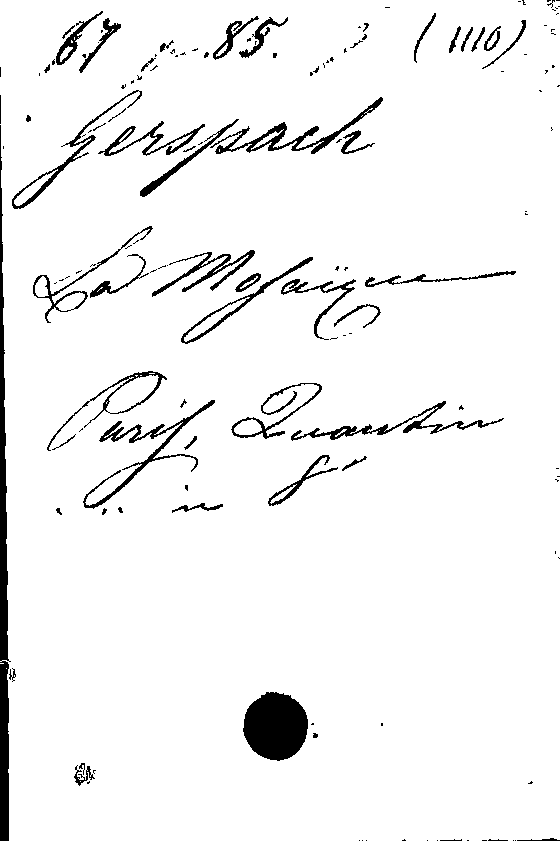 67 85. (1110)
Gerspach
La Mosaïque
Paris, Quantin
... in 8°